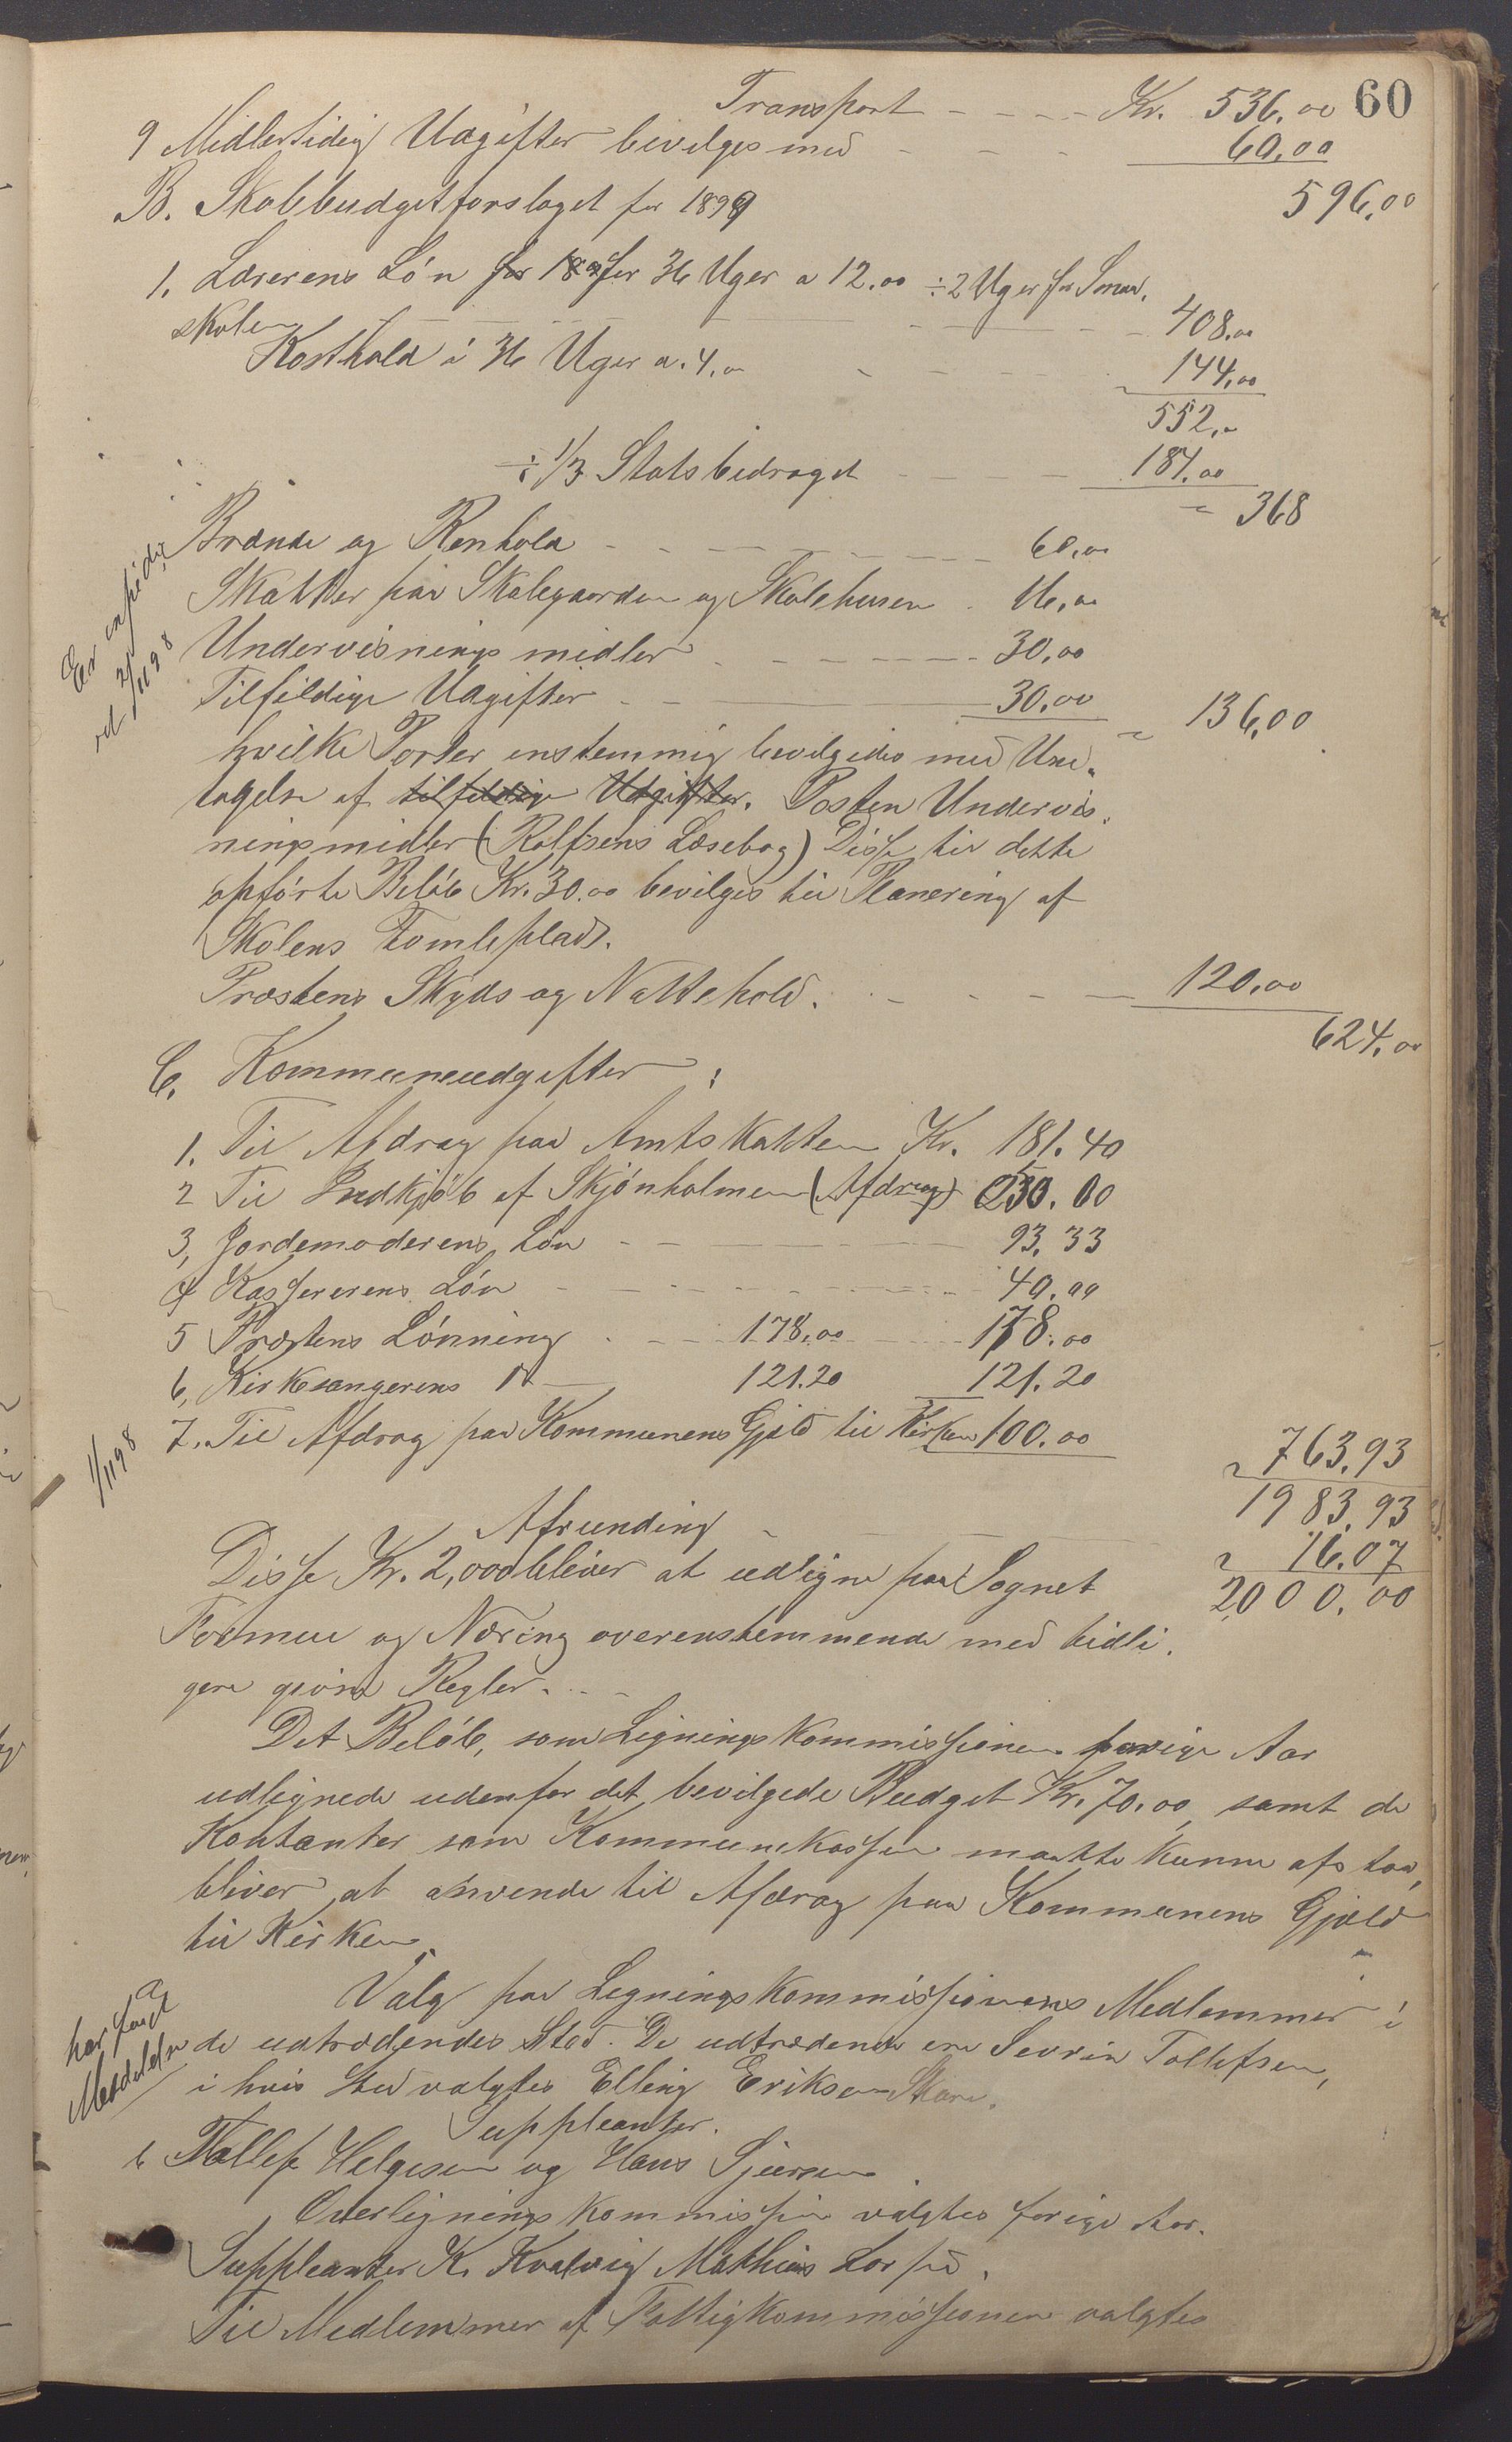 60
Transport - - - - Kr. 536.00
9 Midlertidig Udgifter bevilges med - - - 60.00
596.00
B. Skolebudgetforslaget for 1899
1. Lærerens Løn for 189 for 36 Uger a 12.00 ÷ 2 Uger for Smaa-
skolen - - - 408.00
Kosthold i 36 Uger a. 4.00 - - - 144.00
552.00
÷ 1/3 Statsbidraget - - - 184.00
= 368
Brænde og Renhold - - - 60.00
Skatter paa Skolegaarden og Skolehusene - 16.00
Undervisningsmidler - - - 30.00
Tilfeldige Udgifter - - - 30.00
= 136.00
Er expedi
ved 2/11 98
hvilke Poster enstemmig bevilgedes med Und-
tagelse af tilfeldige Udgifter. Posten Undervis-
ningsmidler (Rolfsens Læsebog) Disse til dette
opførte Beløb Kr. 30.00 bevilges til Planering af
Skolens Tomteplads.
Præstens Skyds og Nattehold. - - - 120.00
624.00
C. Kommuneudgifter:
1. Til Afdrag paa Amtskatten Kr. 181.40
2 Til Indkjøb af Skjønholmen (Afdrag) 50.00
3, Jordemoderens Løn - - - 93.33
4 Kassererens Løn - - - 40.00
5 Præstens Lønning - - - 178.00 178.00
6, Kirkesangerens D— 121.20 121.20
7. Til Afdrag paa Kommunens Gjeld til Kirken 100.00
1/11 98
763.93
1983.93
Afrunding - 16.07
2000.00
Disse Kr. 2,000 bliver at udligne paa Sognet
Formue og Næring overensstemmende med tidli-
gere givne Regler. - -
Det Beløb, som Ligningskommissionen forrige Aar
udlignede udenfor det bevilgede Budget Kr. 70.00, samt de
Kontanter som Kommunekassen maatte kunne afstaa,
bliver at anvende til Afdrag paa Kommunens Gjæld
til Kirken.
Valg paa Ligningskommissionens Medlemmer i
har faaet
Meddelelse
de udtrædendes Sted. De udtrædende ere Sevrin Tollefsen,
i hvis Sted valgtes Elling Eriksen Skare.
Suppleanter.
Tollef Helgesen og Hans Sjursen.
Overligningskommission valgtes forige Aar.
Suppleanter K. Kvalvig Mathias
Til Medlemmer af Fattigkommissionen valgtes